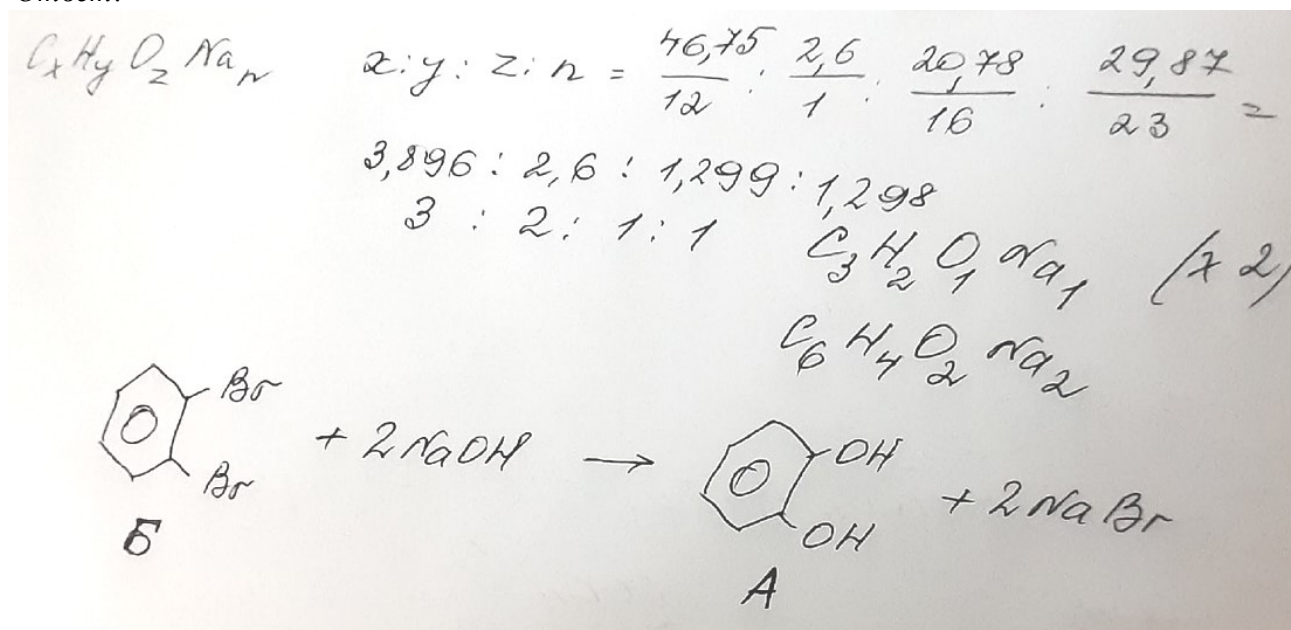 CxHyOzNan x:y:z:n = 46,75/12 : 2,6/1 : 20,78/16 : 29,87/23 =
3,896 : 2,6 : 1,299 : 1,298
3 : 2 : 1 : 1 C3H2O1Na1 (x2)
C6H4O2Na2
Br
Br
+ 2NaOH →
OH
OH
+ 2NaBr
Б
А